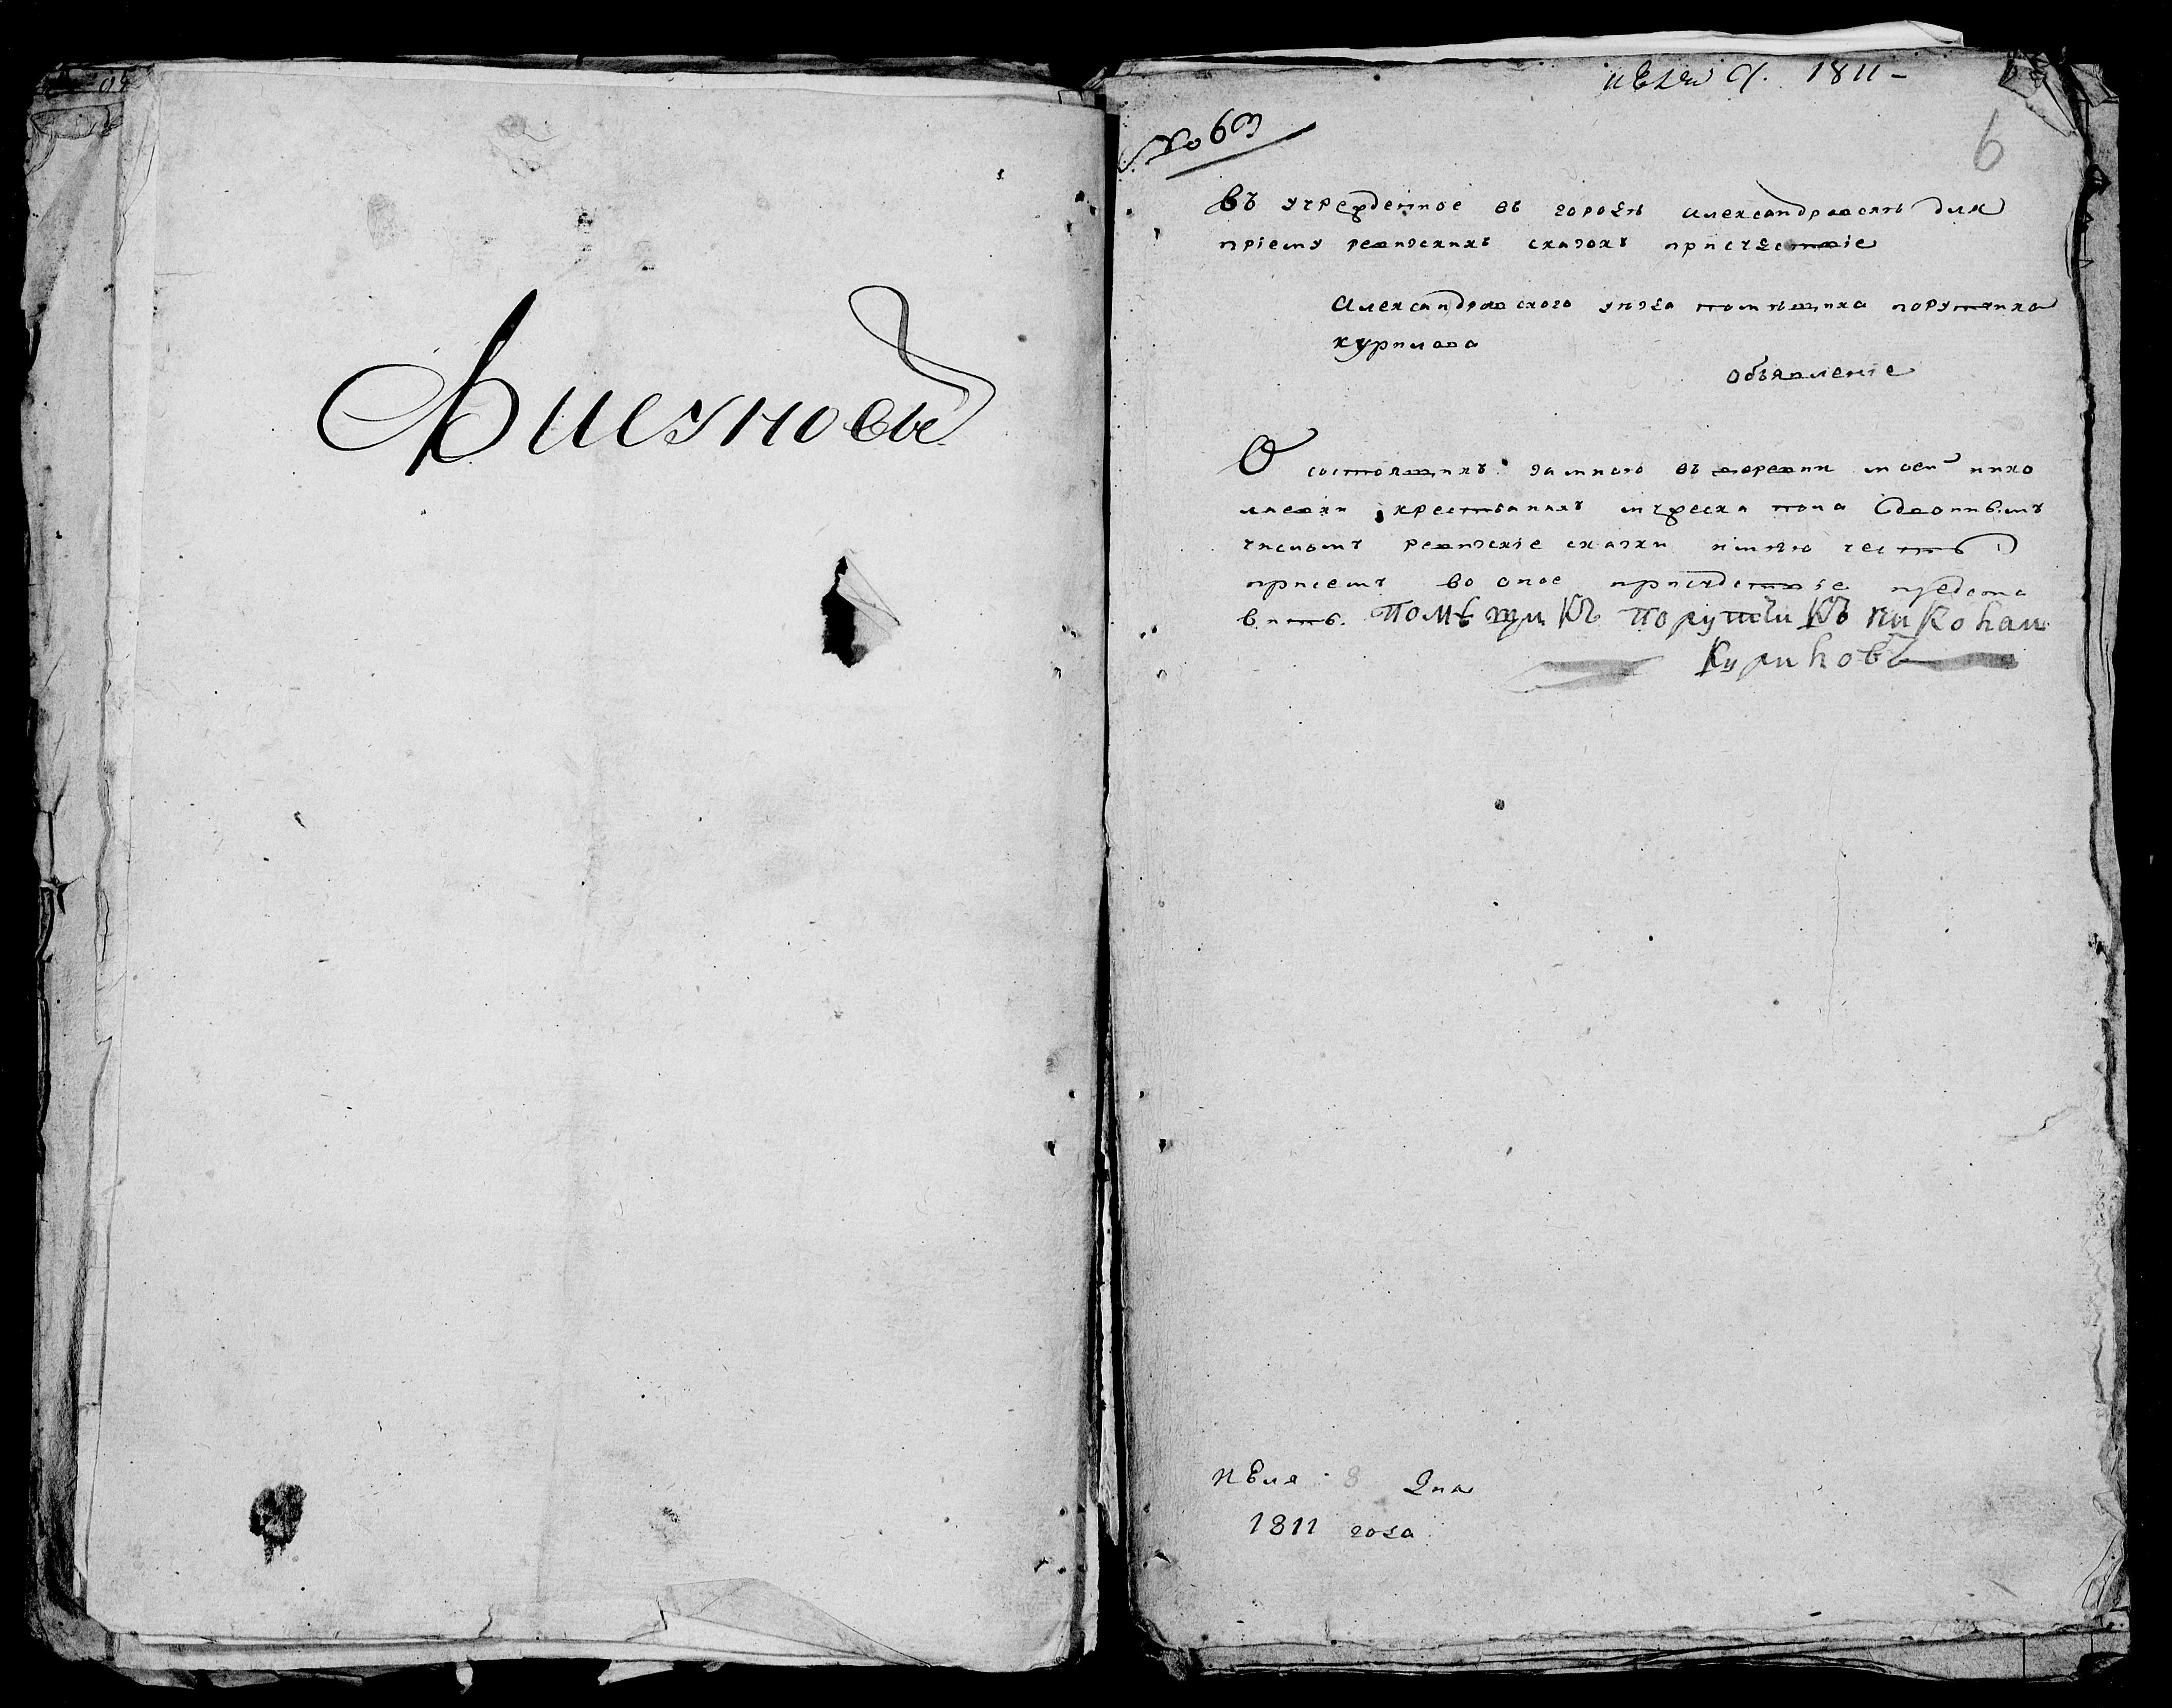 июля 9. 1811 -
№ 63
6
Въ учрежденное въ городѣ александровскѣ для
пріему ревизскихъ сказокъ присудствіе
александровского уѣзда помѣщика порутчика
курилова
объявленіе
О состоящихъ замною въ деревни моей нико
лаевки крестьянахъ мужеска пола Сдвоинымъ
числомъ ревизскіе сказки имѣю честь
присемъ во оное присудствіе предста
вить. помѣщикъ порутчикъ николаи
Куриловъ
июля 8 дня
1811 года